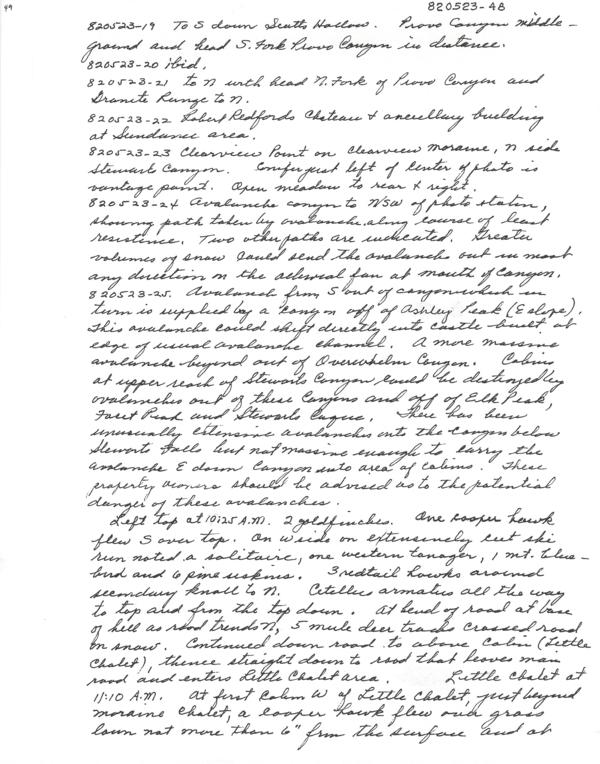 49
820523-4B
820523-19 To S down Scotts Hollow. Provo Canyon middle-
ground and head S. Fork Provo Canyon in distance.
820523-20 ibid.
820523-21 to N with head N. Fork of Provo Canyon and
Granite Range to N.
820523-22 Robert Redfords Chateau & ancillary building
at Sundance area.
820523-23 Clearview Point on Clearview moraine, N side
Stewart Canyon. Conifer just left of center of photo is
vantage point. Open meadow to rear & right.
820523-24 Avalanche canyon to WSW of photo station,
showing path taken by avalanche along course of least
resistence. Two other paths are indicated. Greater
volumes of snow could send the avalanche out in most
any direction on the alluvial fan at mouth of Canyon.
820523-25. Avalanch from S out of canyon which in
turn is supplied by a canyon off of Ashley Peak (E slope).
This avalanche could shift directly into castle built at
edge of usual avalanche channel. A more massive
avalanche beyond out of Overwhelm Canyon. Cabins
at upper reach of Stewarts Canyon could be destroyed by
avalanches out of these Canyons and off of Elk Peak,
Facet Peak and Stewarts Cirque. There has been
unusually extensive avalanches into the Canyon below
Stewarts Falls but not massive enough to carry the
avalanche E down Canyon into area of cabins. These
property owners should be advised as to the potential
danger of these avalanches.
Left top at 10:25 A.M. 2 goldfinches. One cooper hawk
flew S over top. On W side on extensively cut ski
run noted a solitaire, one western tanager, 1 mt. blue-
bird and 6 pine siskins. 3 redtail hawks around
secondary knoll to N. Citellus armatus all the way
to top and from the top down. At bend of road at base
of hill as road trends N, 5 mule deer tracks crossed road
on snow. Continued down road to above Cabin (Little
Chalet), thence straight down to road that leaves main
road and enters Little Chalet area. Little Chalet at
11:10 A.M. At first Cabin W of Little Chalet, just beyond
moraine Chalet, a cooper hawk flew over grass
lawn not more than 6" from the surface and at